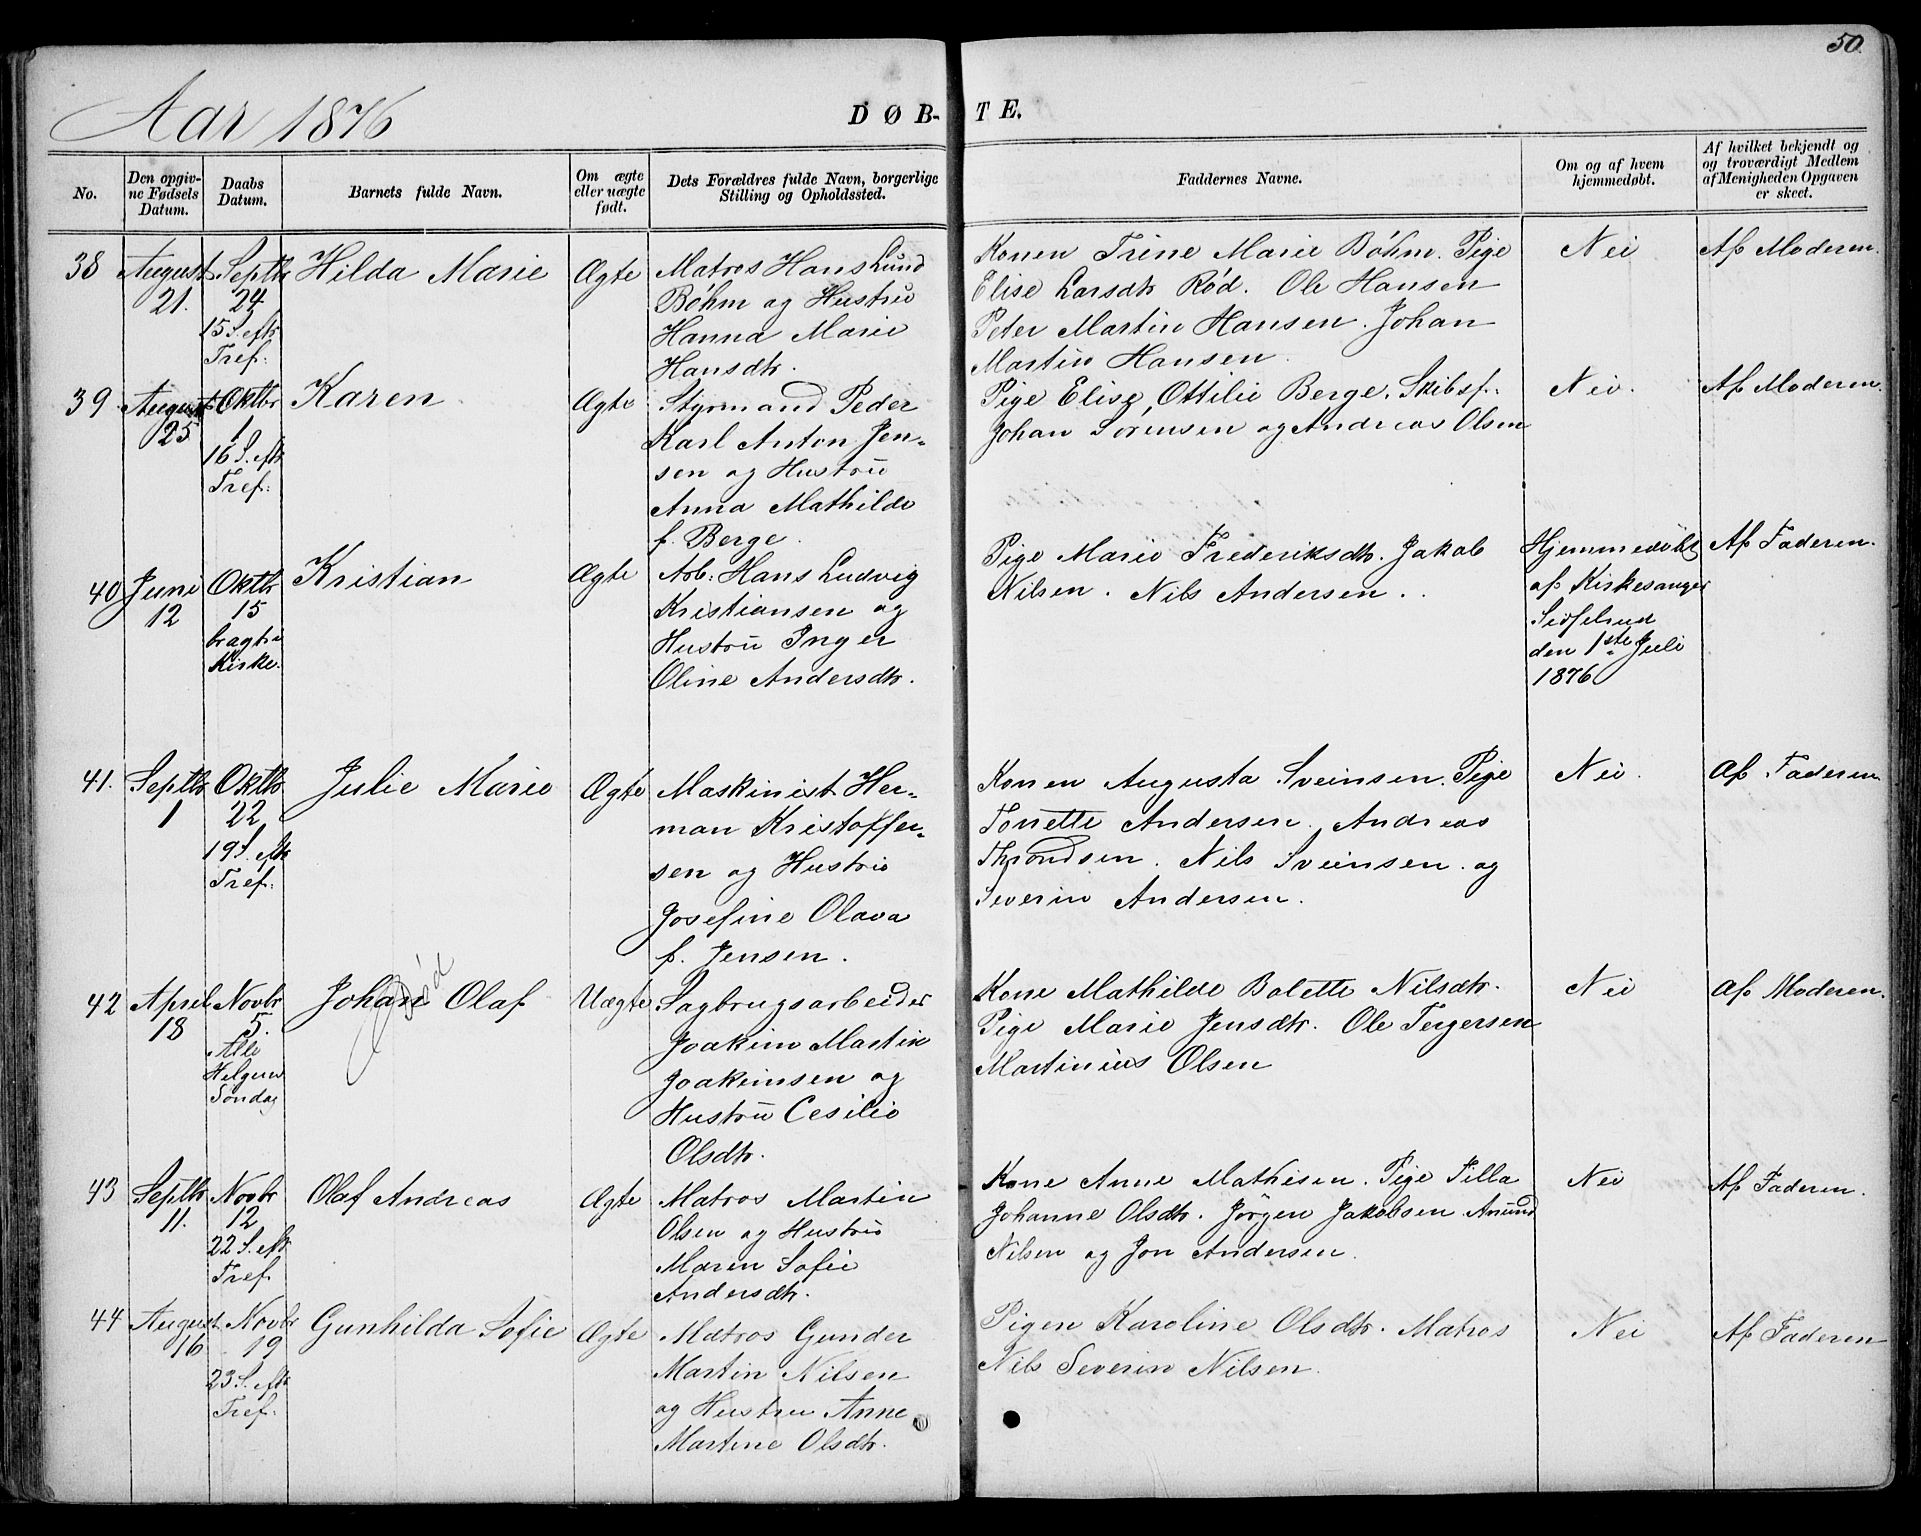 50.
Aar 1876
DØB-TE.
No.
Den opgivne Fødsels Datum.
Daabs Datum.
Barnets fulde Navn.
Om ægte eller uægte født.
Dets Forældres fulde Navn, borgerlige Stilling og Opholdssted.
Faddernes Navne.
Om og af hvem hjemmedøbt.
Af hvilket bekjendt og og troværdigt Medlem af Menigheden Opgaven er skeet.
38
August
21.
Septbr
24
15 S. eftr
Tref:
Hilda Marie
Ægte
Matros Hans Lund
Bøhm og Hustru
Hanna Marie
Hansdtr.
Konen Trine Marie Bøhm. Pige
Elise Larsdtr Rød. Ole Hansen
Peter Martin Hansen. Johan
Martin Hansen.
Nei
Af Moderen.
39
August
25
Oktbr
1
16 S. eftr
Tref:
Karen
Ægte
Styrmand Peder
Karl Anton Jen-
sen og Hustru
Anna Mathilde
f. Berge.
Pige Elise, Ottilie Berge. Skibsf.
Johan Sørensen og Andreas Olsen
Nei.
Af Moderen.
40
Juni
12
Oktbr
15
bragt i
Kirke.
Kristian
Ægte
Arb: Hans Ludvig
Kristiansen og
Hustru Inger
Oline Andersdtr.
Pige Marie Frederiksdtr. Jakob
Nilsen. Nils Andersen.
Hjemmedøbt
af Kirkesanger
den 1ste Juli
1876
Af Faderen.
41.
Septbr
1
Oktbr
22
19 S. eftr
Tref:
Julie Marie
Ægte
Maskinist Her-
man Kristoffer-
sen og Hustru
Josefine Olava
f. Jensen.
Konen Augusta Sveinsen. Pige
Tonette Andersen. Andreas
Throndsen. Nils Sveinsen. og
Severin Andersen.
Nei.
Af Faderen
42
April
18
Novbr
5.
Alle
Helgens
Søndag
Johan Olaf
Død
Uægte
Sagbrugsarbeider
Joakim Martin
Joakimsen og
Hustru Cesilie
Olsdtr.
Kone Mathilde Bolette Nilsdtr.
Pige Marie Jensdtr. Ole Tergersen
Martinius Olsen
Nei
Af Moderen.
43
Septbr
11.
Novbr
12
22 S. eftr
Tref.
Olaf Andreas
Ægte
Matros Martin
Olsen og Hustru
Maren Sofie
Andersdtr.
Kone Anne Mathisen. Pige Tilla
Johanne Olsdtr. Jørgen Jakobsen. Anund
Nilsen og Jon Andersen.
Nei
Af Faderen.
44
August
16
Novbr
19
23 S. eftr
Tref:
Gunhilda Sofie
Ægte
Matros Gunder
Martin Nilsen
og Hustru Anne
Martine Olsdtr.
Pigen Karoline Olsdtr. Matros
Nils Severin Nilsen.
Nei
Af Faderen